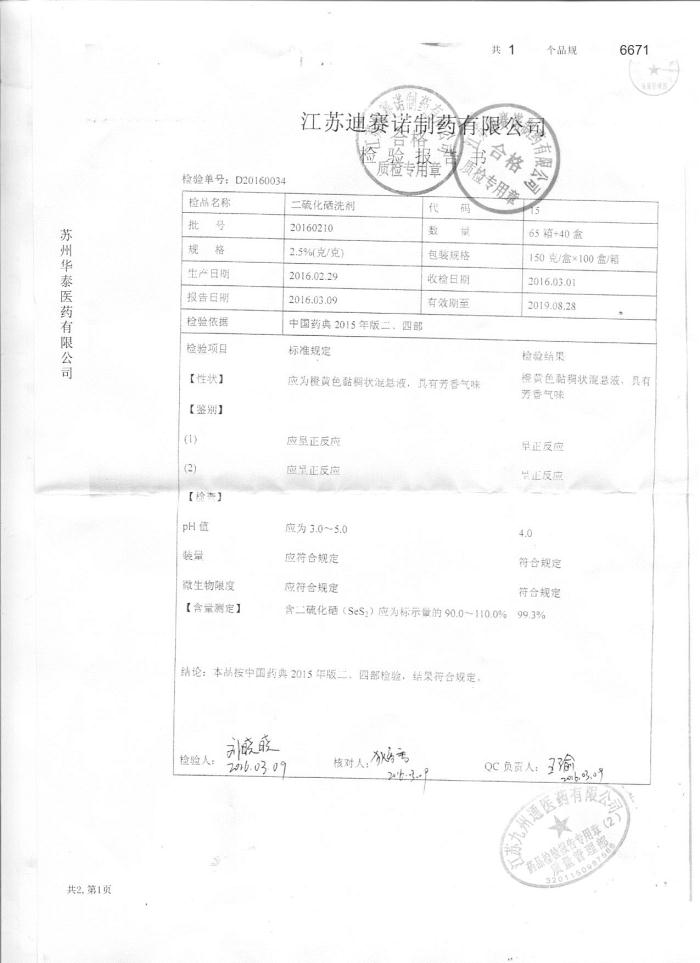 共 1 个品规 6671
江苏迪赛诺制药有限公司
检验报告书
合格
质检专用章
合格
质检专用章
检验单号：D20160034
检品名称 二硫化硒洗剂 代 码 15
批 号 20160210 数 量 65 箱+40 盒
规 格 2.5%(克/克) 包装规格 150 克/盒×100 盒/箱
生产日期 2016.02.29 收检日期 2016.03.01
报告日期 2016.03.09 有效期至 2019.08.28
检验依据 中国药典 2015 年版二、四部
检验项目 标准规定 检验结果
【性状】 应为橙黄色黏稠状混悬液，具有芳香气味 橙黄色黏稠状混悬液，具有
芳香气味
【鉴别】
(1) 应呈正反应 呈正反应
(2) 应呈正反应 呈正反应
【检查】
pH 值 应为 3.0～5.0 4.0
装量 应符合规定 符合规定
微生物限度 应符合规定 符合规定
【含量测定】 含二硫化硒（SeS₂）应为标示量的 90.0～110.0% 99.3%
结论：本品按中国药典 2015 年版二、四部检验，结果符合规定。
检验人： 刘晓晓 核对人： QC 负责人： 王瑜
2016.03.09 2016.3.09 2016.03.09
苏州华泰医药有限公司
江苏九州通医药有限公司
药品检验报告专用章(2)
质量管理部
共2, 第1页